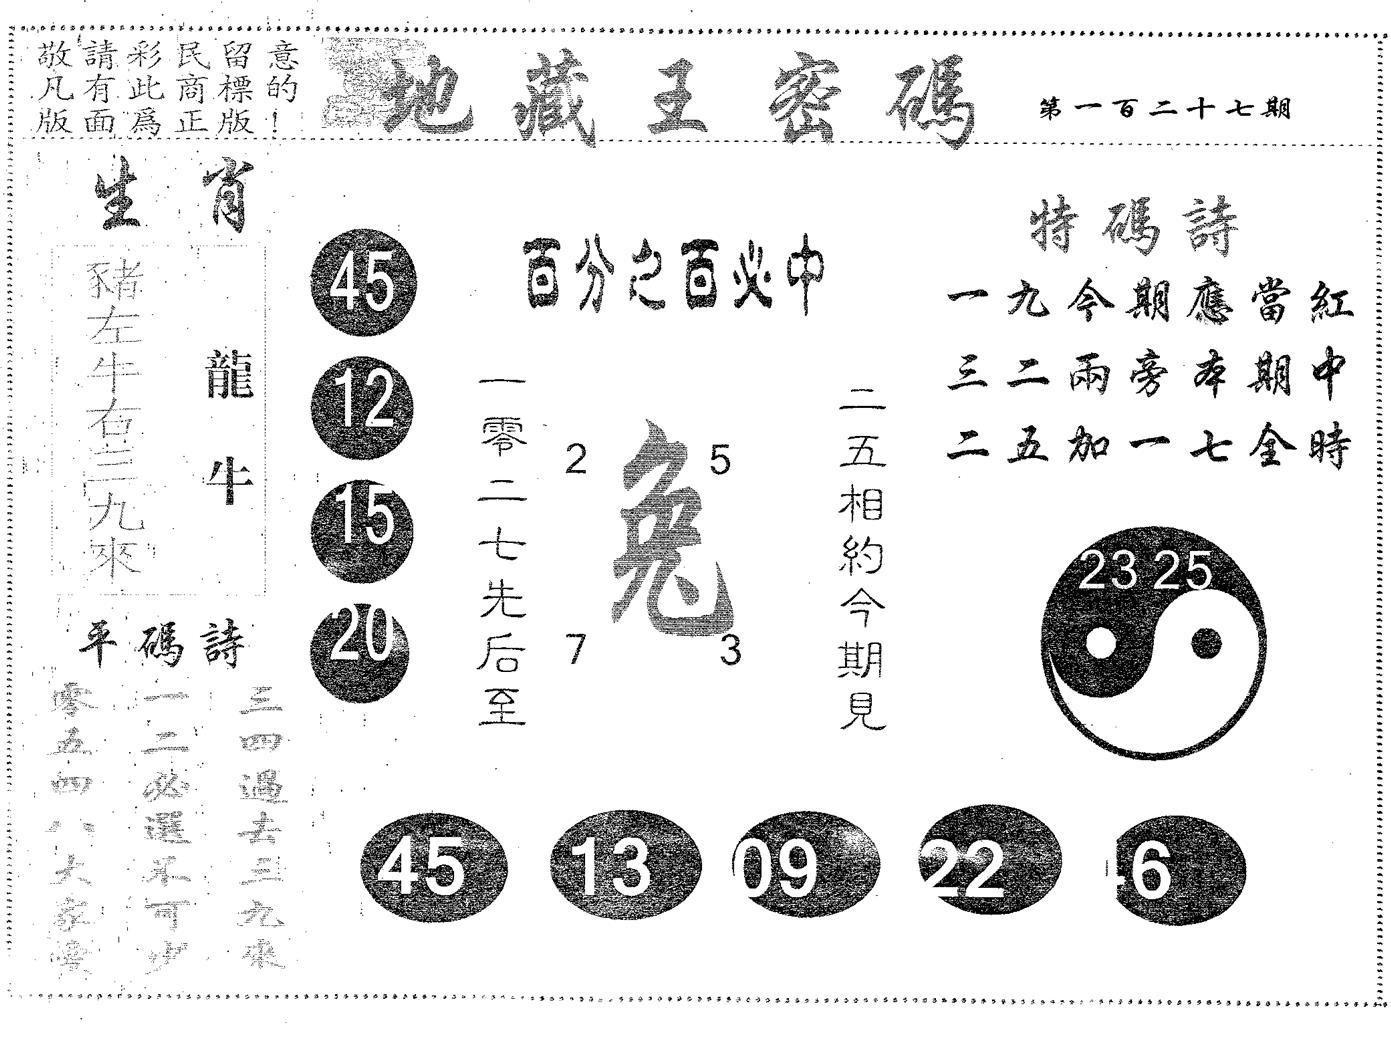 敬請彩民留意
凡有此商標的
版面爲正版!
地藏王密碼
第一百二十七期
生肖
豬左牛右三九來
龍牛
平碼詩
零五四八大家要
一二必選不可少
三四過去三九來
45
12
15
20
百分之百必中
一零二七先后至
2 5
兔
7 3
二五相約今期見
特碼詩
一九今期應當紅
三二兩旁本期中
二五加一七全時
23 25
45 13 09 22 46